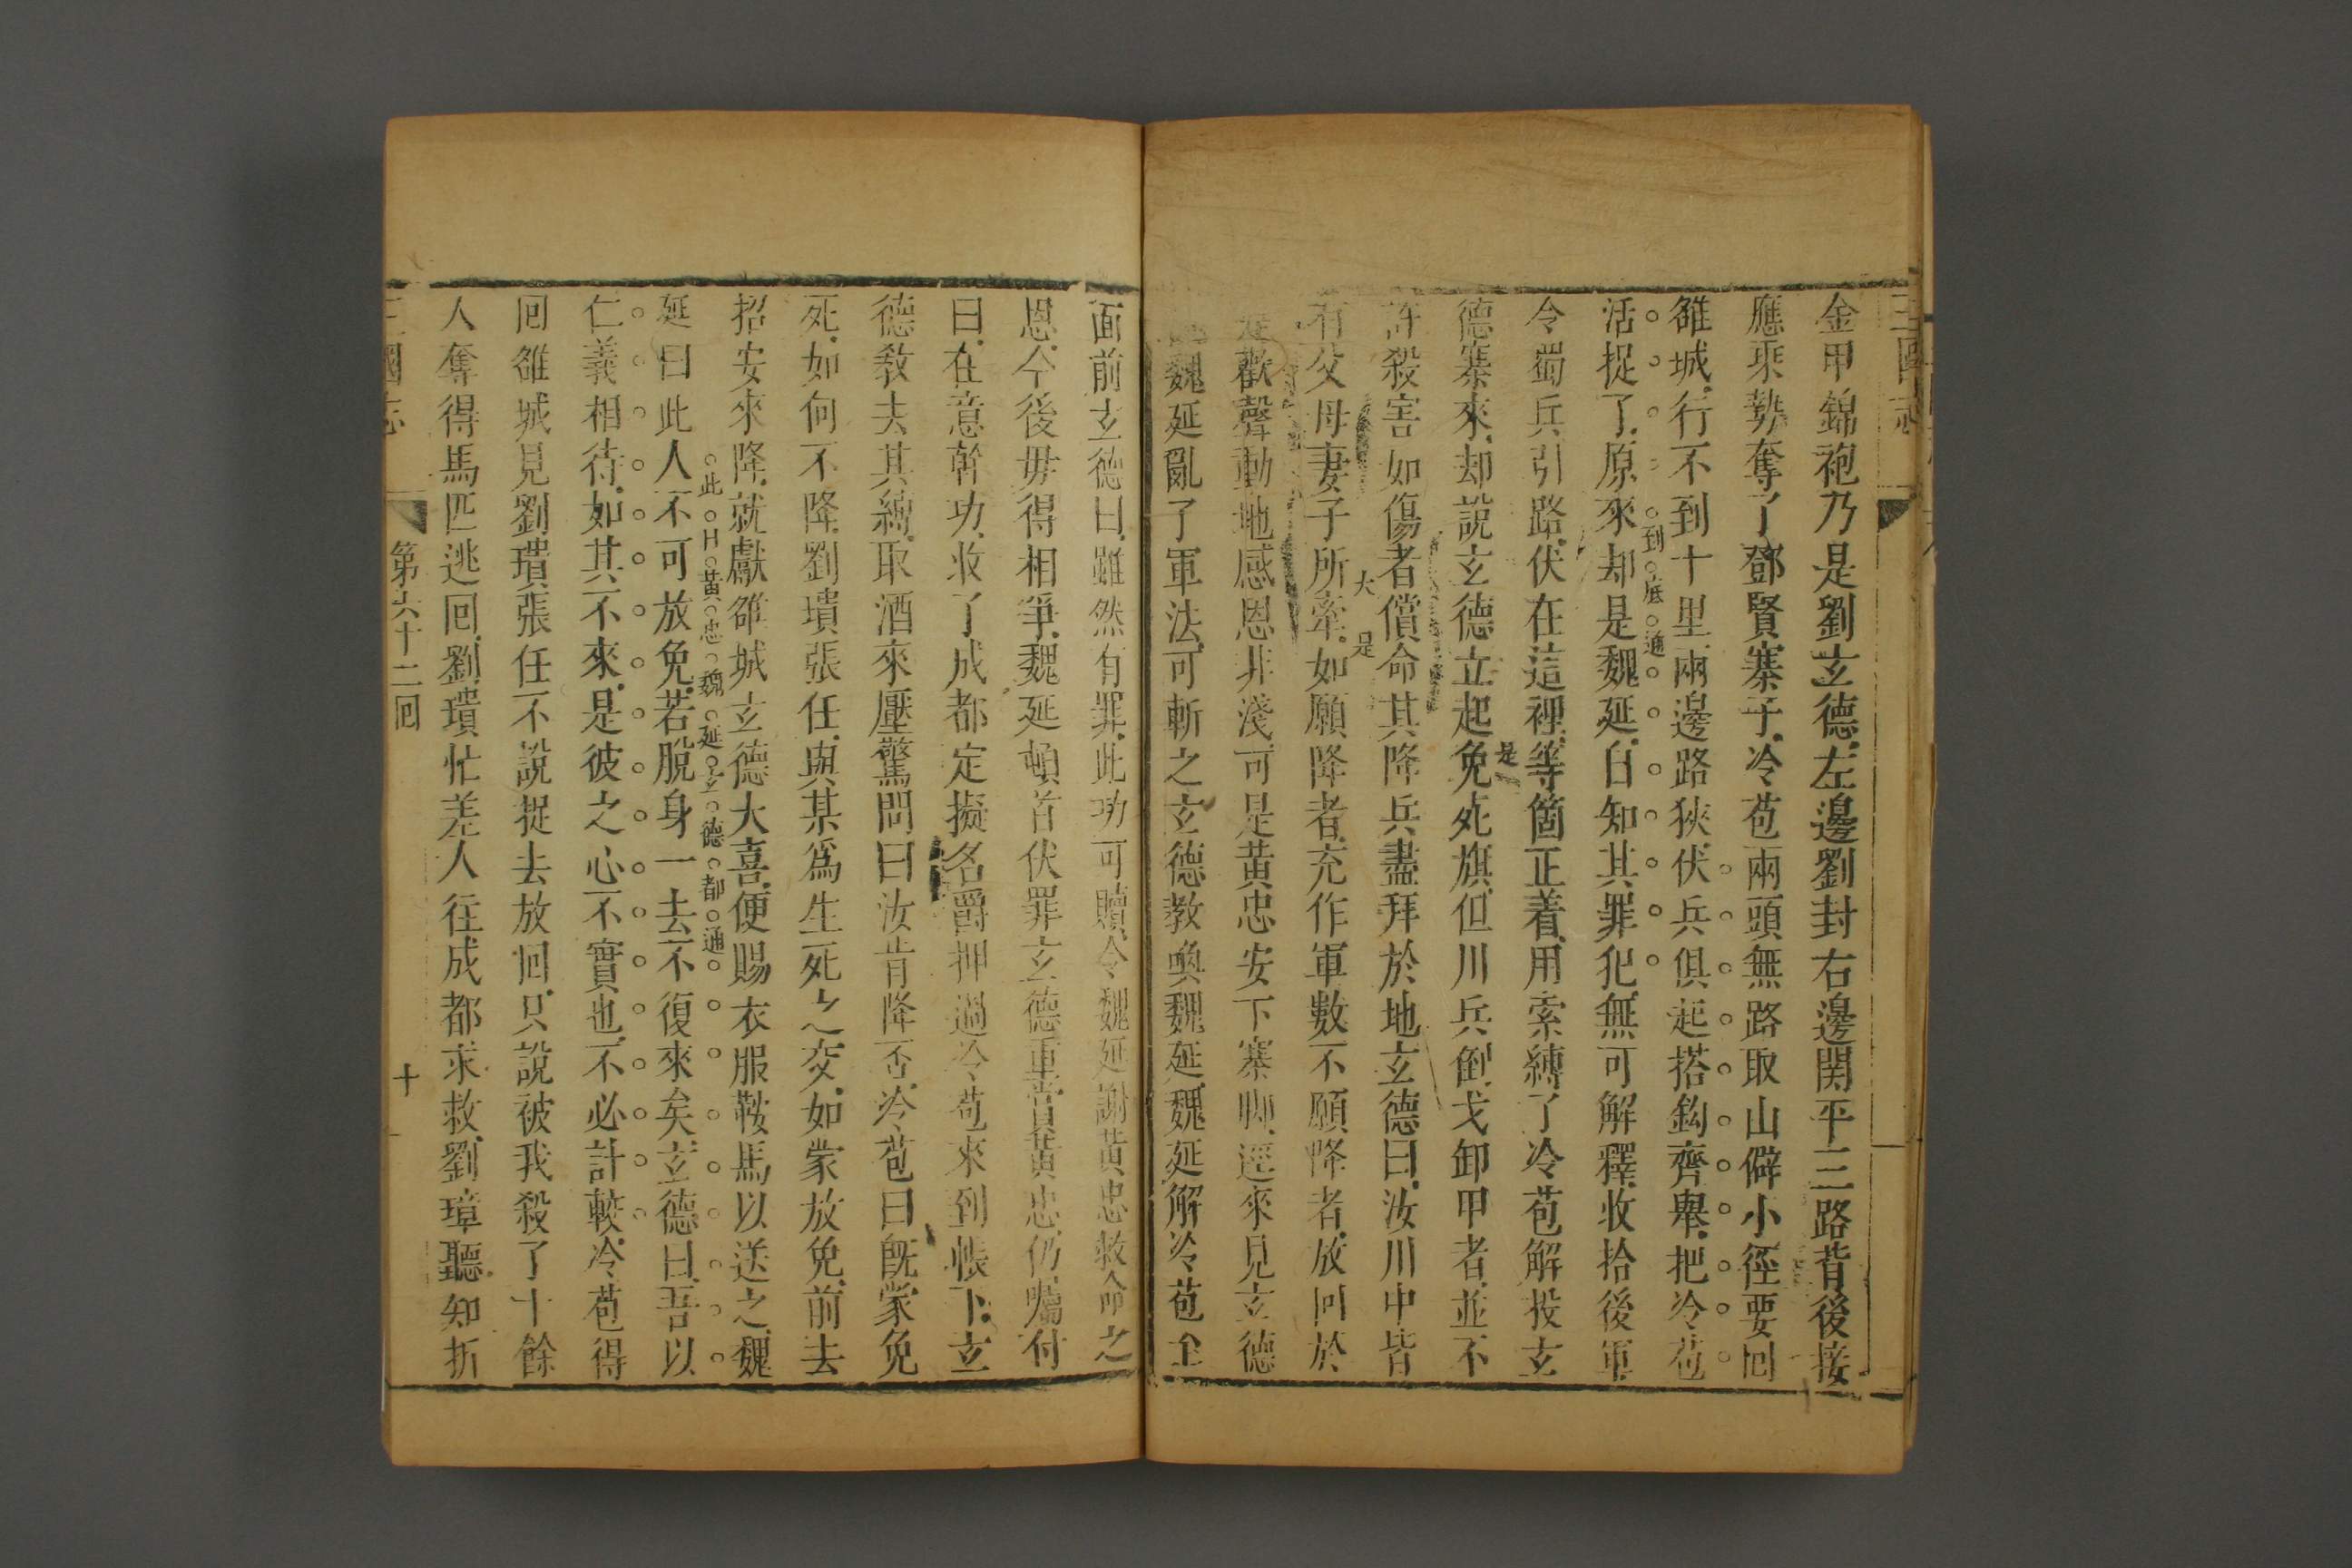 三國志
金甲錦袍乃是劉玄德左邊劉封右邊関平三路背後接
應乘勢奪了鄧賢寨子冷苞兩頭無路取山僻小徑要回
雒城行不到十里兩邊路狹伏兵俱起搭鈎齊舉把冷苞
到底通
活捉了原來却是魏延自知其罪犯無可解釋收拾後軍
令蜀兵引路伏在這裡等箇正着用索縛了冷苞解投玄
是
德寨來却說玄德立起免死旗但川兵倒戈卸甲者並不
許殺害如傷者償命其降兵盡拜於地玄德曰汝川中皆
大是
有父母妻子所牽如願降者充作軍數不願降者放回於
是歡聲動地感恩非淺可是黃忠安下寨脚逕來見玄德
魏延亂了軍法可斬之玄德教喚魏延魏延解冷苞至
面前玄德曰雖然有罪此功可贖令魏延謝黃忠救命之
恩今後毋得相爭魏延頓首伏罪玄德重賞黃忠仍囑付
曰在意幹功收了成都定擬名爵押過冷苞來到帳下玄
德教去其縛取酒來壓驚問曰汝肯降否冷苞曰旣蒙免
死如何不降劉璝張任與某爲生死之交如蒙放免前去
招安來降就獻雒城玄德大喜便賜衣服鞍馬以送之魏
此日黃忠魏延玄德都通
延曰此人不可放免若脫身一去不復來矣玄德曰吾以
仁義相待如其不來是彼之心不實也不必計較冷苞得
回雒城見劉璝張任不說捉去放回只說被我殺了十餘
人奪得馬匹逃回劉璝忙差人往成都求救劉璋聽知折
三國志
第六十二回
十